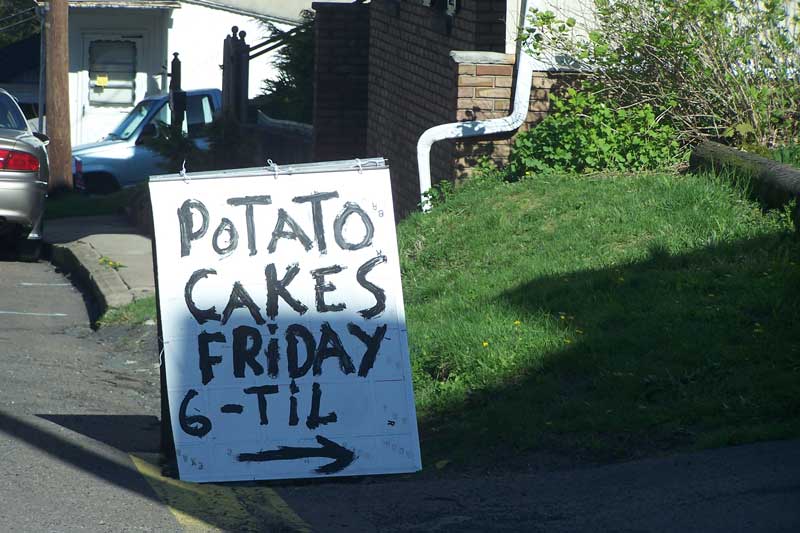 POTATO
CAKES
FRiDAY
6-TiL